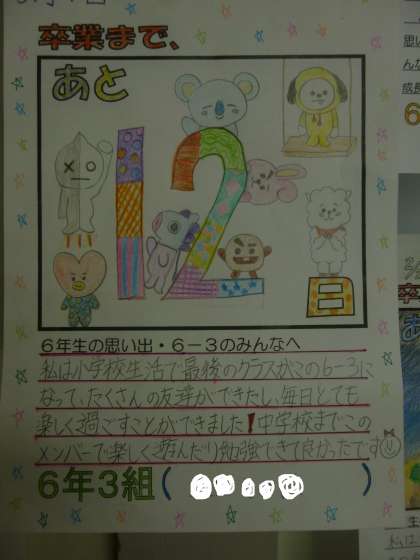 卒業まで、
あと
12
日
6年生の思い出・6-3のみんなへ
私は小学校生活で最後のクラスがこの6-3に
なって、たくさんの友達ができたし、毎日とても
楽しく過ごすことができました!中学校までこの
メンバーで楽しく遊んだり勉強できて良かったです
6年3組(
思い
んな
成長
6